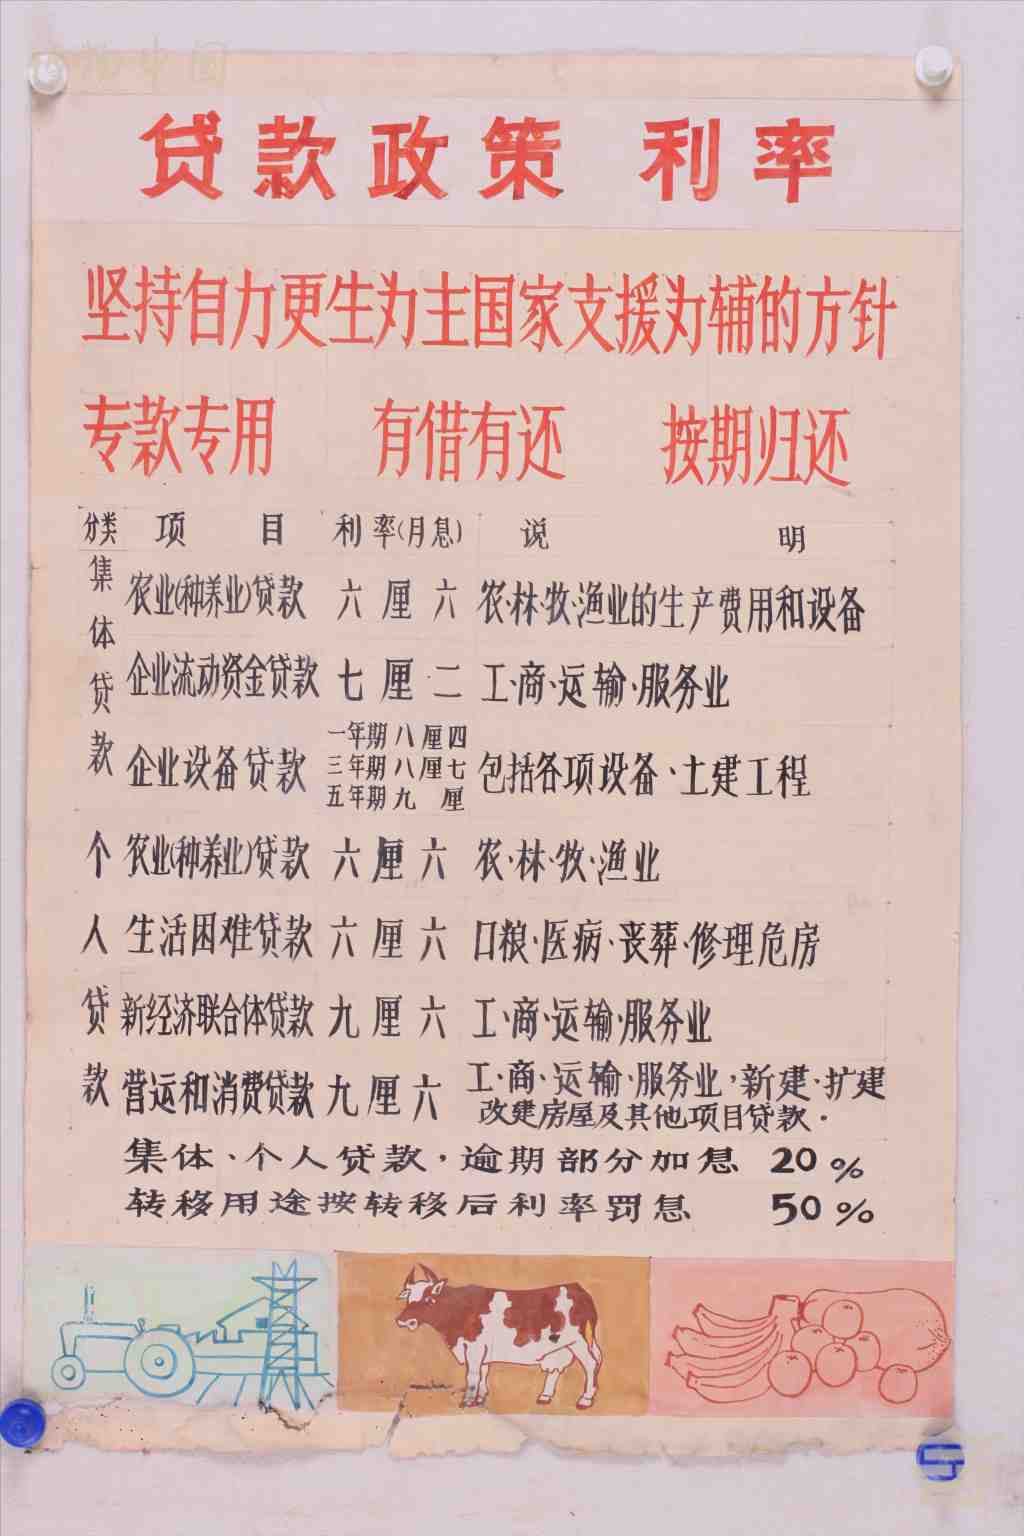 贷款政策 利率
坚持自力更生为主国家支援为辅的方针
专款专用 有借有还 按期归还
分类 项目 利率(月息) 说明
集体贷款
农业(种养业)贷款 六厘六 农、林、牧、渔业的生产费用和设备
企业流动资金贷款 七厘二 工、商、运输、服务业
企业设备贷款 一年期八厘四 包括各项设备、土建工程
三年期八厘七
五年期九厘
个人贷款
农业(种养业)贷款 六厘六 农、林、牧、渔业
生活困难贷款 六厘六 口粮、医病、丧葬、修理危房
新经济联合体贷款 九厘六 工、商、运输、服务业
营运和消费贷款 九厘六 工、商、运输、服务业,新建、扩建
改建房屋及其他项目贷款.
集体、个人贷款,逾期部分加息 20%
转移用途按转移后利率罚息 50%